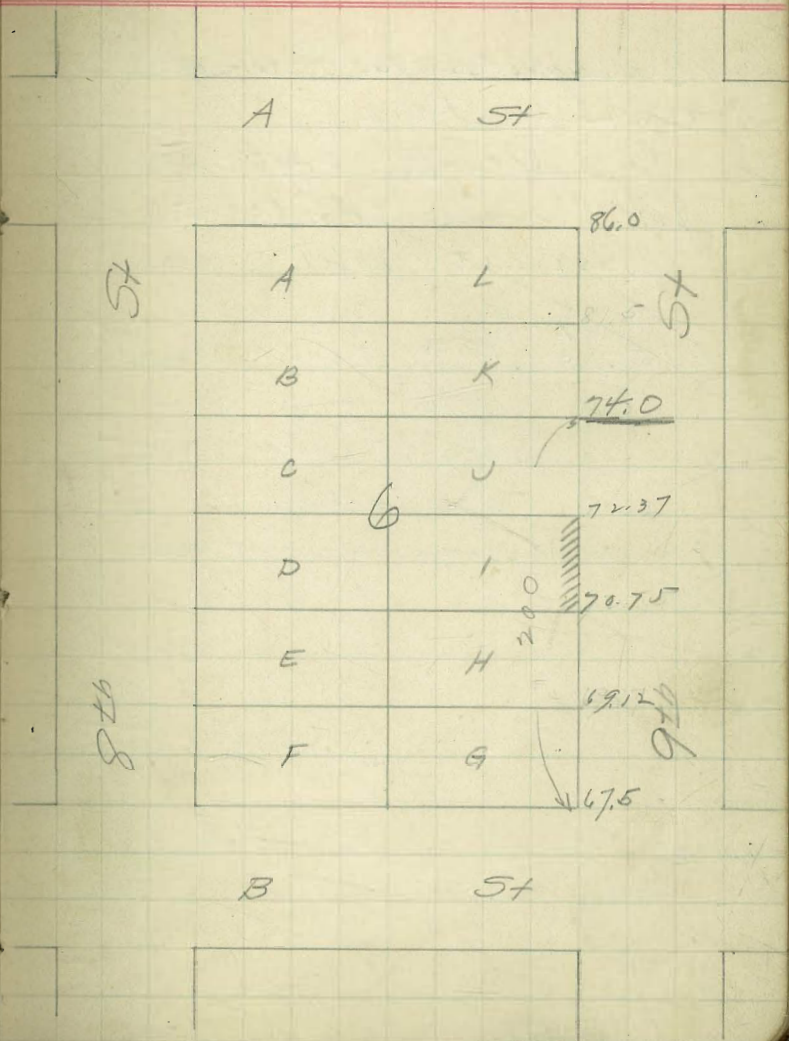 A St
86.0
St
A L
St
B K
74.0
C J
72.37
6
D I
200
70.75
E H
69.12
8th
9th
F G
67.5
B St